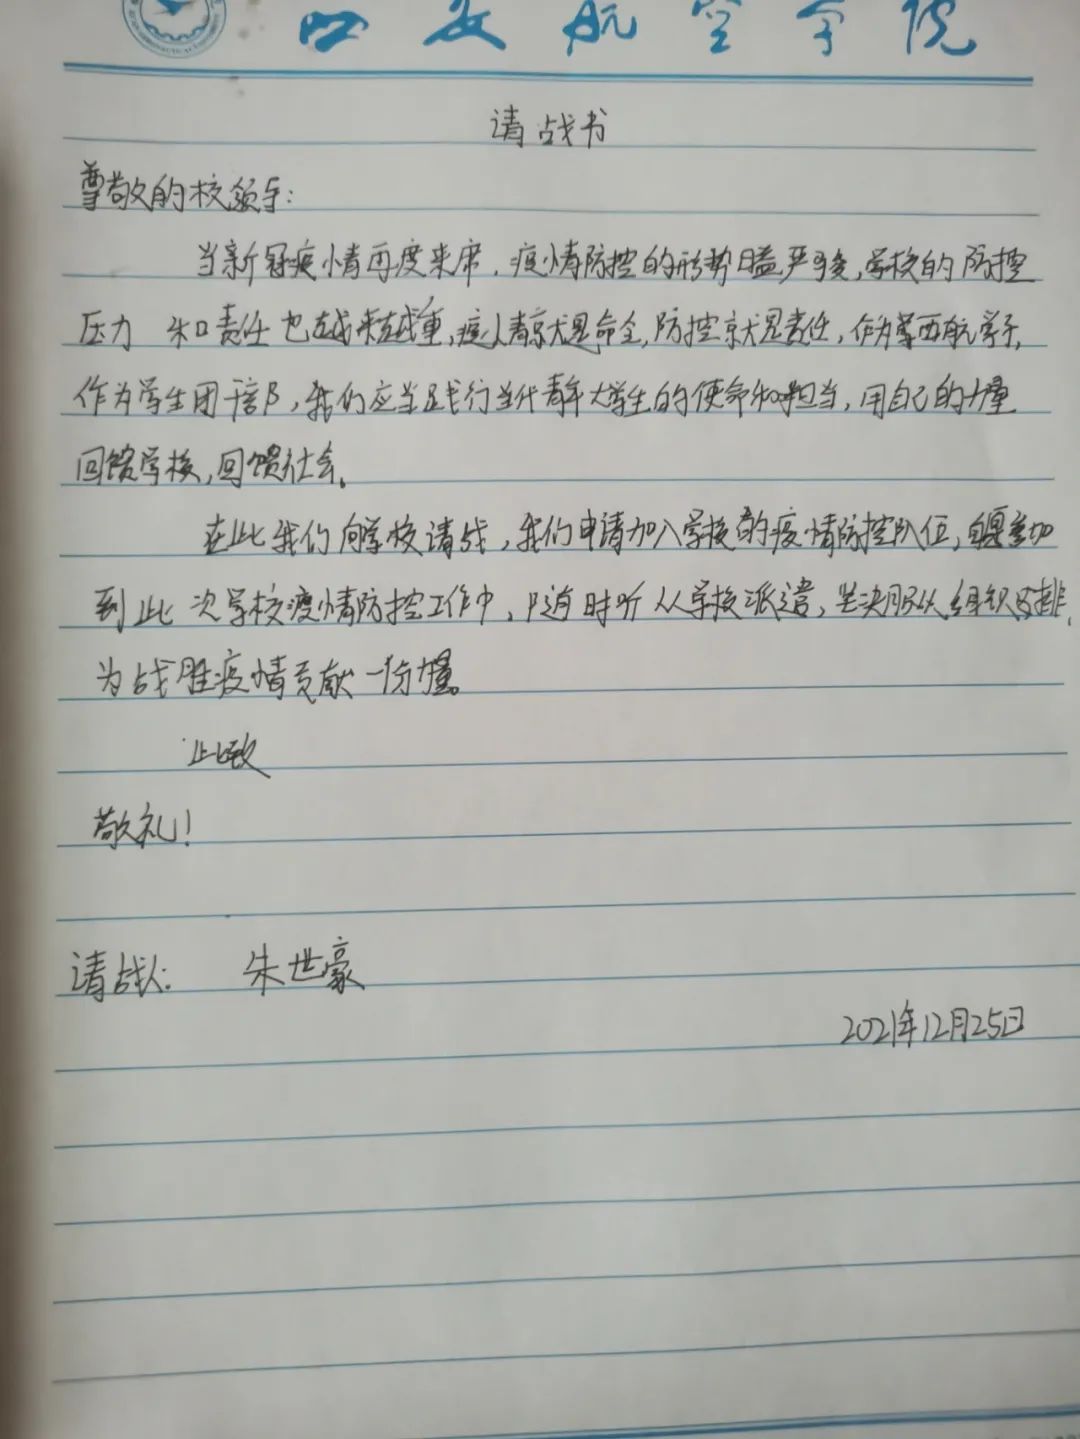 西安航空学院
请战书
尊敬的校领导:
当新冠疫情再度来席,疫情防控的形势日益严峻,学校的防控
压力 和责任也越来越重,疫情就是命令,防控就是责任,作为西航学子,
作为学生团干部,我们应当践行当代青年大学生的使命和担当,用自己的力量
回馈学校,回馈社会。
在此我们向学校请战,我们申请加入学校的疫情防控队伍,自愿参加
到此次学校疫情防控工作中,随时听从学校派遣,坚决服从组织安排,
为战胜疫情贡献一份力量。
此致
敬礼!
请战人: 朱世豪
2021年12月25日